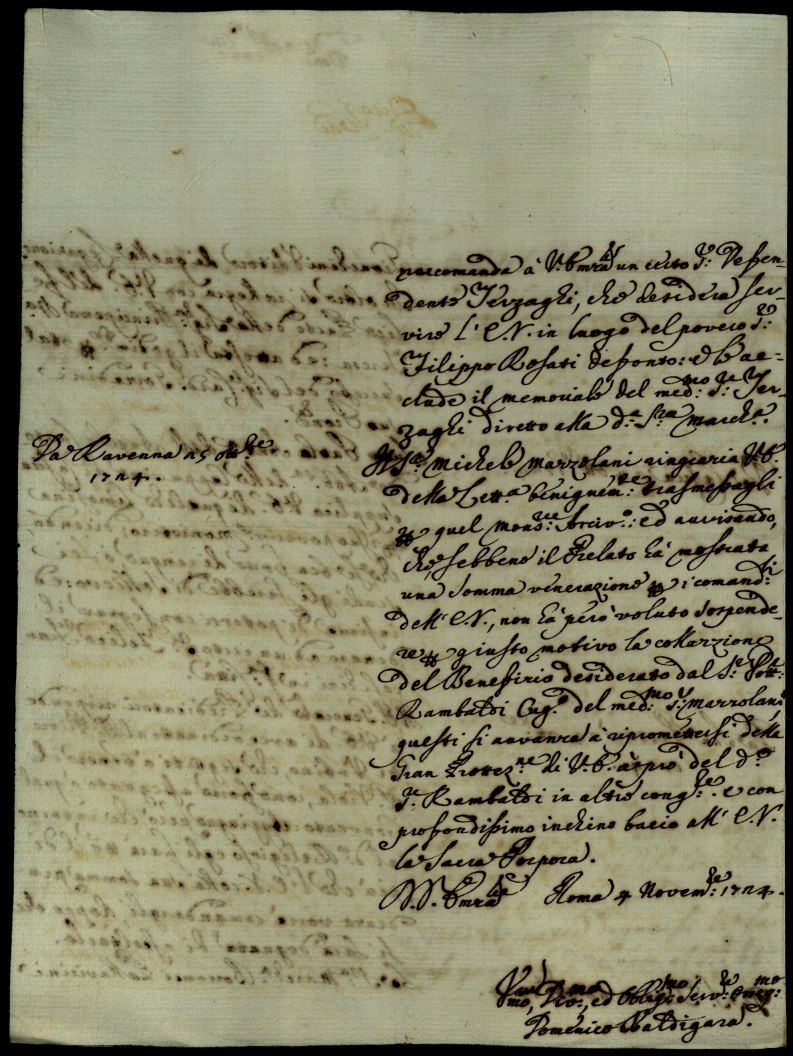 raccomanda à V. Emza un certo Sr. Defen-
dente Terzaghi, che desidera ser-
vire l'E.V. in luogo del povero Sr.
Filippo Rosati defonto: ed ac-
clude il memoriale del medmo. Sr. Ter-
zaghi diretto alla da. Sra March.a
Da Ravenna 25 Ottbre
1724.
Il Sr. Michele Marzolani ringrazia V.E.
della Letta. benignemte. trasmessagli
per quel Monsre. Arcivo.: ed avvisando,
che sebbene il Prelato hà mostrata
una somma venerazione per i comandi
dell'E.V., non hà però voluto sospende-
re per giusto motivo la collazione
del Benefizio desiderato dal Sr. Dottre.
Rambaldi Cugo. del medmo. Sr. Marzolani,
questi si avvanza à ripromettersi della
Gran Protezne. di V.E. à prò del do.
Sr. Rambaldi in altre congre. e con
profondissimo inchino bacio all'E.V.
la Sacra Porpora.
D.V. Emza Roma 4 Novembre 1724.
Umo, Divmo., ed Obligmo. Servre. Osseqmo.
Domenico Baldigara.